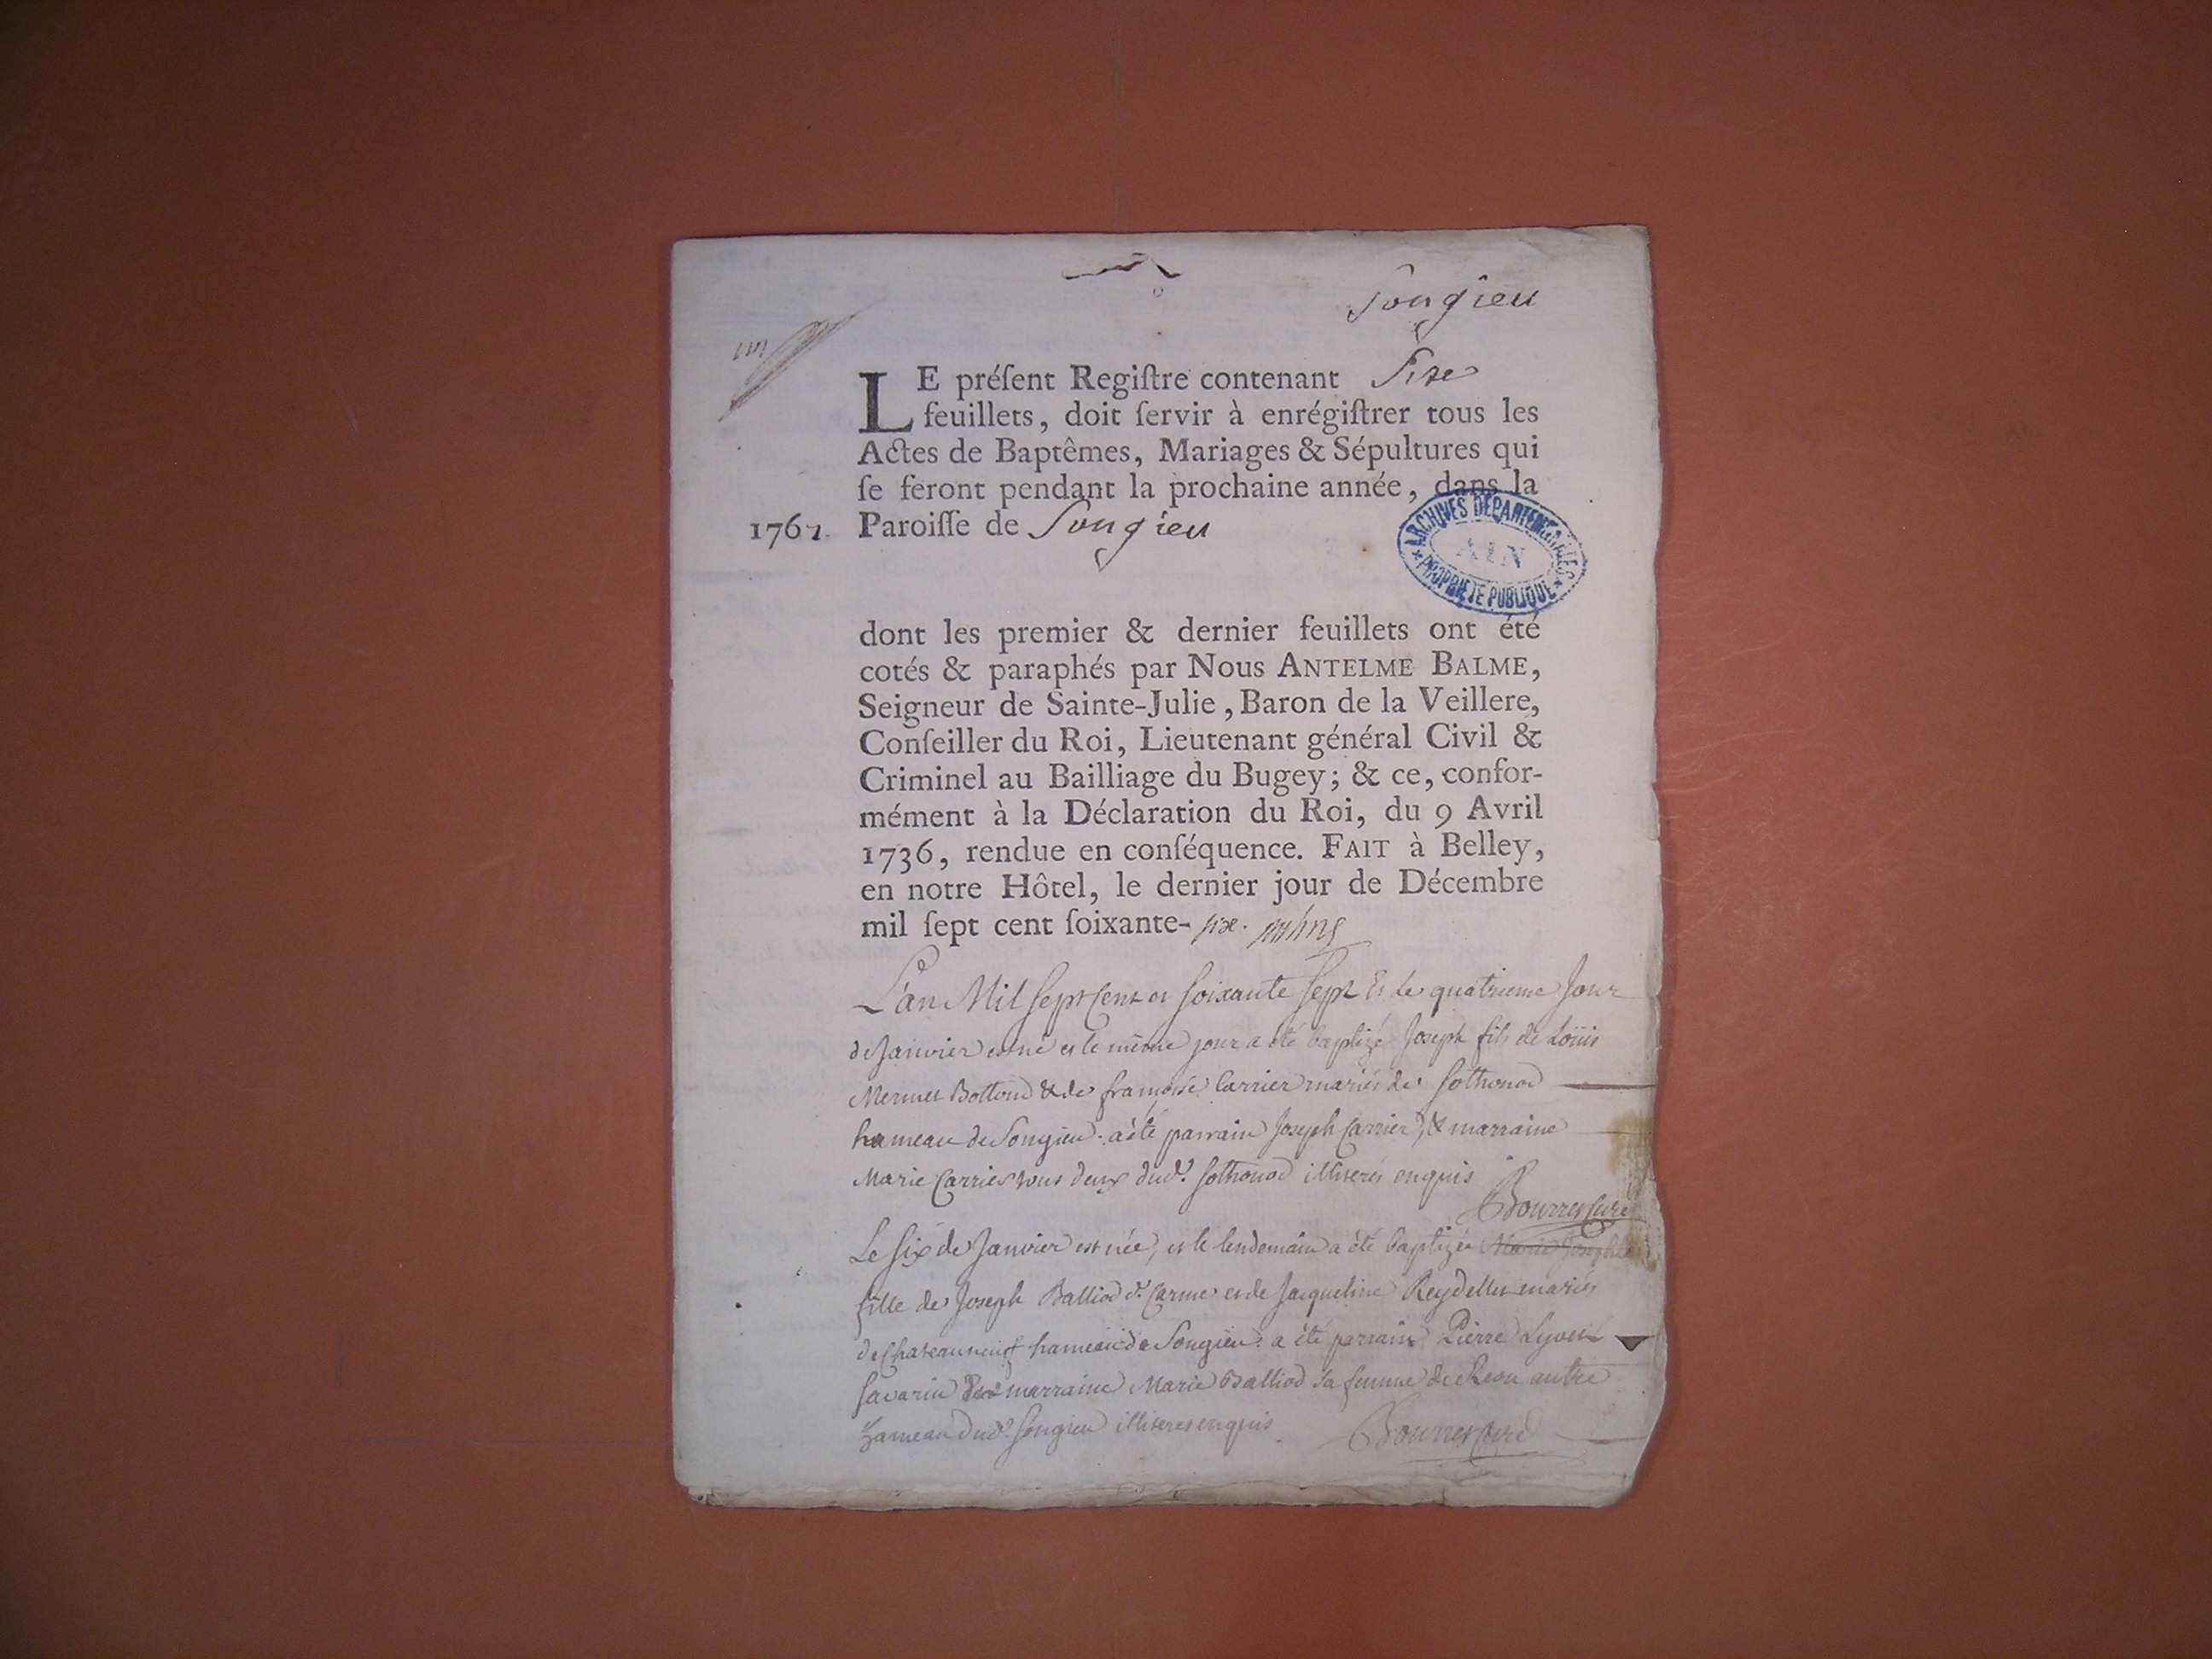 Songieu
LE préſent Regiſtre contenant Sixe
feuillets, doit ſervir à enrégiſtrer tous les
Actes de Baptêmes, Mariages & Sépultures qui
ſe feront pendant la prochaine année, dans la
1767. Paroiſſe de Songieu
ARCHIVES DÉPARTEMENTALES
AIN
PROPRIÉTÉ PUBLIQUE
dont les premier & dernier feuillets ont été
cotés & paraphés par Nous ANTELME BALME,
Seigneur de Sainte-Julie, Baron de la Veillere,
Conſeiller du Roi, Lieutenant général Civil &
Criminel au Bailliage du Bugey; & ce, confor-
mément à la Déclaration du Roi, du 9 Avril
1736, rendue en conſéquence. FAIT à Belley,
en notre Hôtel, le dernier jour de Décembre
mil ſept cent ſoixante- six.
L'an Mil sept Cent et soixante sept Et le quatrieme Jour
de Janvier est né et le même jour a été baptizé Joseph fils de Loüis
Mermet Bottond & de françoise Carrier mariés de Sothonod
hameau de Songieu. a été parrain Joseph Carrier, & marraine
Marie Carrier tous deux dud. Sothonod illiterés enquis
Bourret Curé
Le six de Janvier est née, et le lendemain a été baptizée Marie Josephte
fille de Joseph Balliod d. Carme et de Jacqueline Reydellet mariés
de Chateauneuf hameau de Songieu: a été parrain Pierre
Savarin marraine Marie Balliod sa femme de autre
hameau dud. Songieu illiteres enquis
Bourret Curé